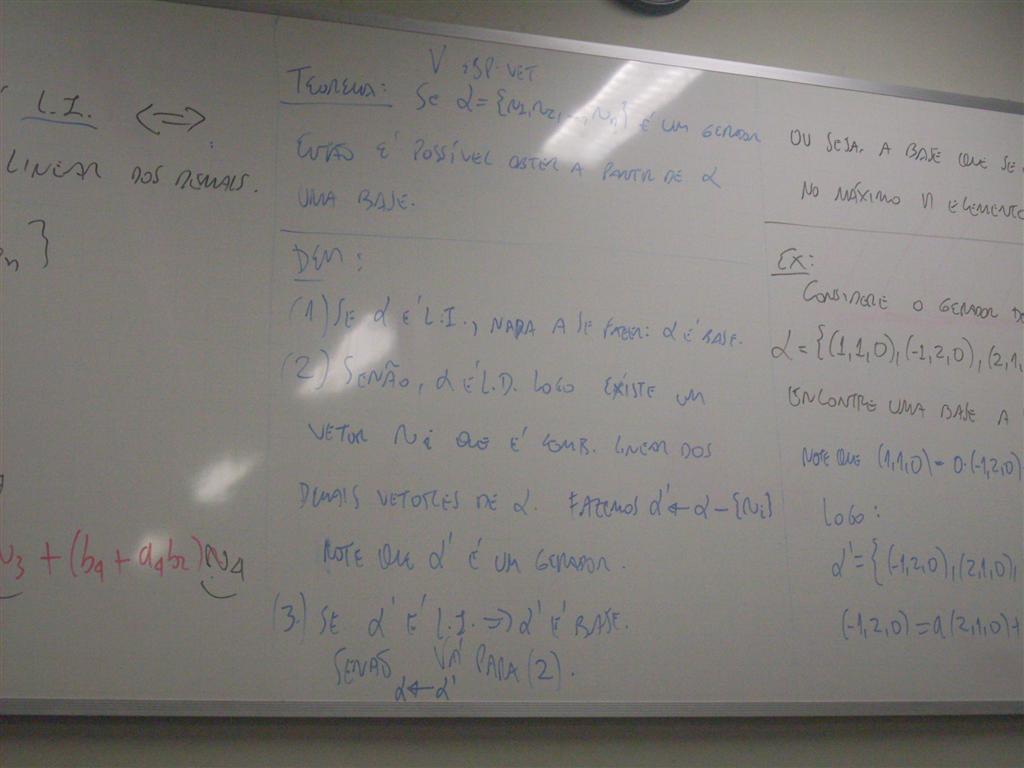 L.I. <=>
LINEAR DOS DEMAIS.
}
+ (b4 + a4b2) N4
V ESP. VET
TEOREMA: SE α = {N1, N2, ..., Nn} É UM GERADOR
ENTÃO É POSSÍVEL OBTER A PARTIR DE α
UMA BASE.
DEM:
(1) SE α É L.I., NADA A SE FAZER: α É BASE.
(2) SENÃO, α É L.D. LOGO EXISTE UM
VETOR Ni QUE É COMB. LINEAR DOS
DEMAIS VETORES DE α. FAZEMOS α' ← α - {Ni}
NOTE QUE α' É UM GERADOR.
(3) SE α' É L.I. => α' É BASE.
SENÃO VÁ PARA (2).
α ← α'
OU SEJA, A BASE QUE SE
NO MÁXIMO n ELEMENTO
EX:
CONSIDERE O GERADOR DE
α = {(1,1,0), (-1,2,0), (2,1,
ENCONTRE UMA BASE A
NOTE QUE (1,1,0) = 0·(-1,2,0)
LOGO:
α' = {(-1,2,0), (2,1,0),
(-1,2,0) = a(2,1,0) +